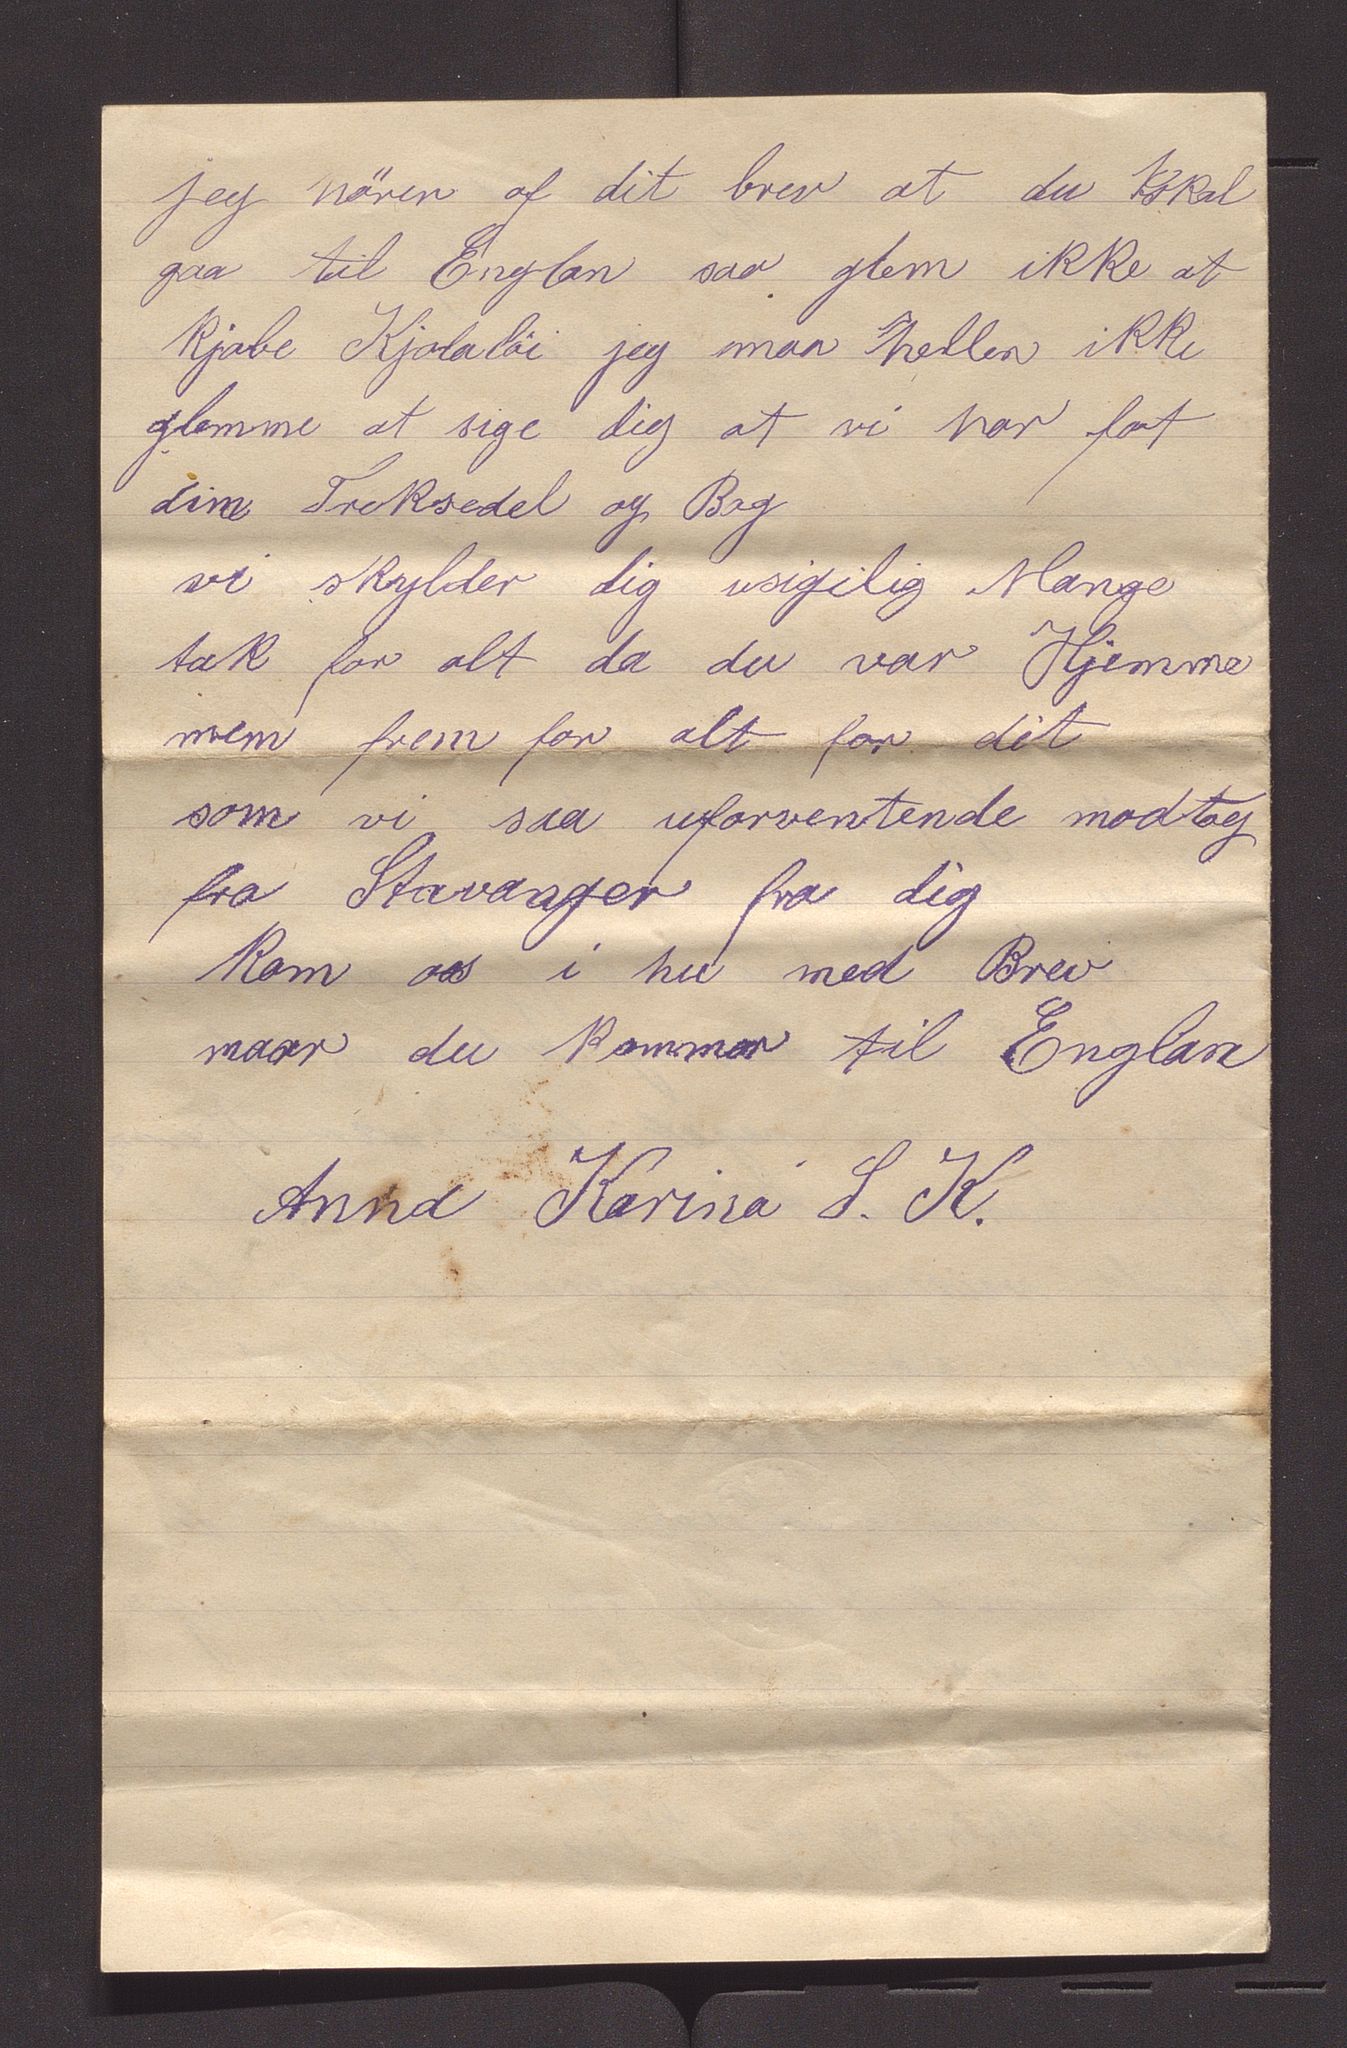 jeg hörer af dit brev at du skal
gaa til Englan saa glem ikke at
kjøbe Kjolatöi jeg maa heller ikke
glemme at sige dig at vi har faat
din Treksedel og Bog
vi skylder dig usigilig Mange
tak for alt da du var Hjemme
men frem for alt for dit
som vi saa uforventende modtog
fra Stavanger fra dig
Kom os i hu med Brev
naar du kommer til Englan
Anna Karina S. K.